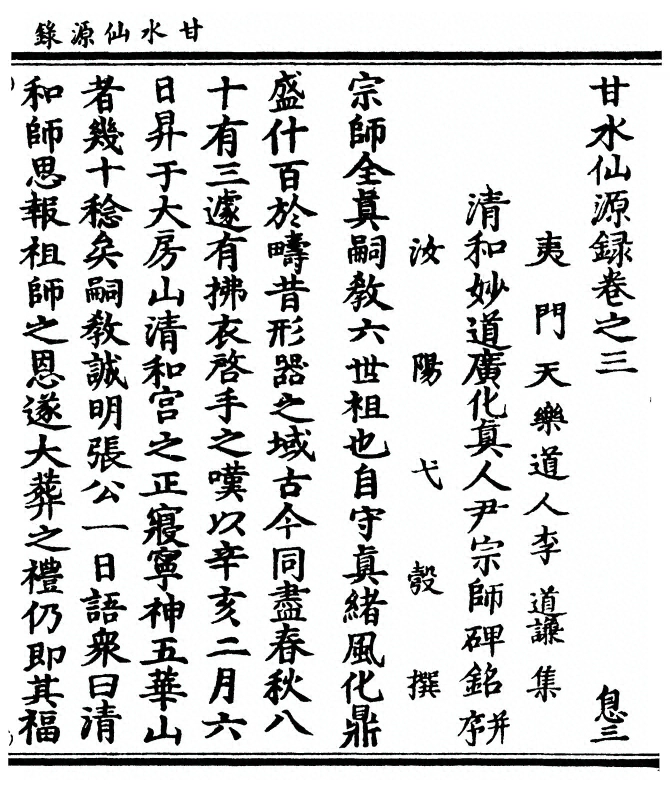 甘水仙源錄
甘水仙源録卷之三 息三
夷門天樂道人李道謙集
清和妙道廣化真人尹宗師碑銘并序
汝陽弋彀撰
宗師全真嗣教六世祖也自守真緒風化鼎
盛什百於疇昔形器之域古今同盡春秋八
十有三遽有拂衣啓手之嘆以辛亥二月六
日昇于大房山清和宮之正寢寧神五華山
者幾十稔矣嗣教誠明張公一日語衆曰清
和師思報祖師之恩遂大葬之禮仍即其福